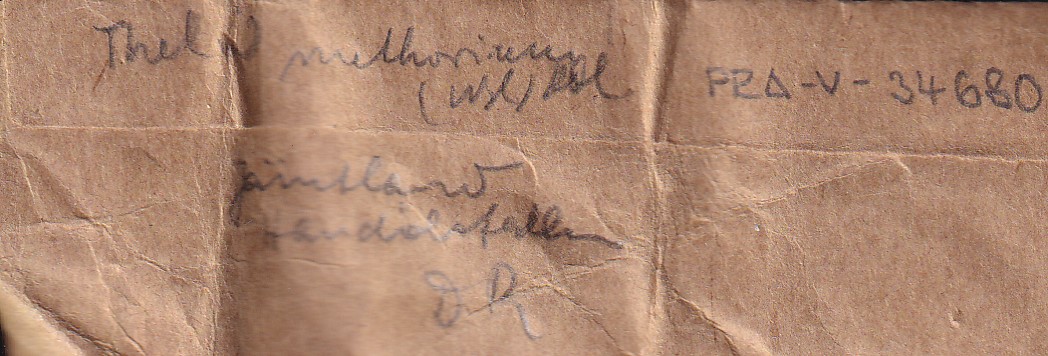 Thel methorium
(Nyl) Hel
FRA-V-34680
Jämtland
Handölsfallen
D R